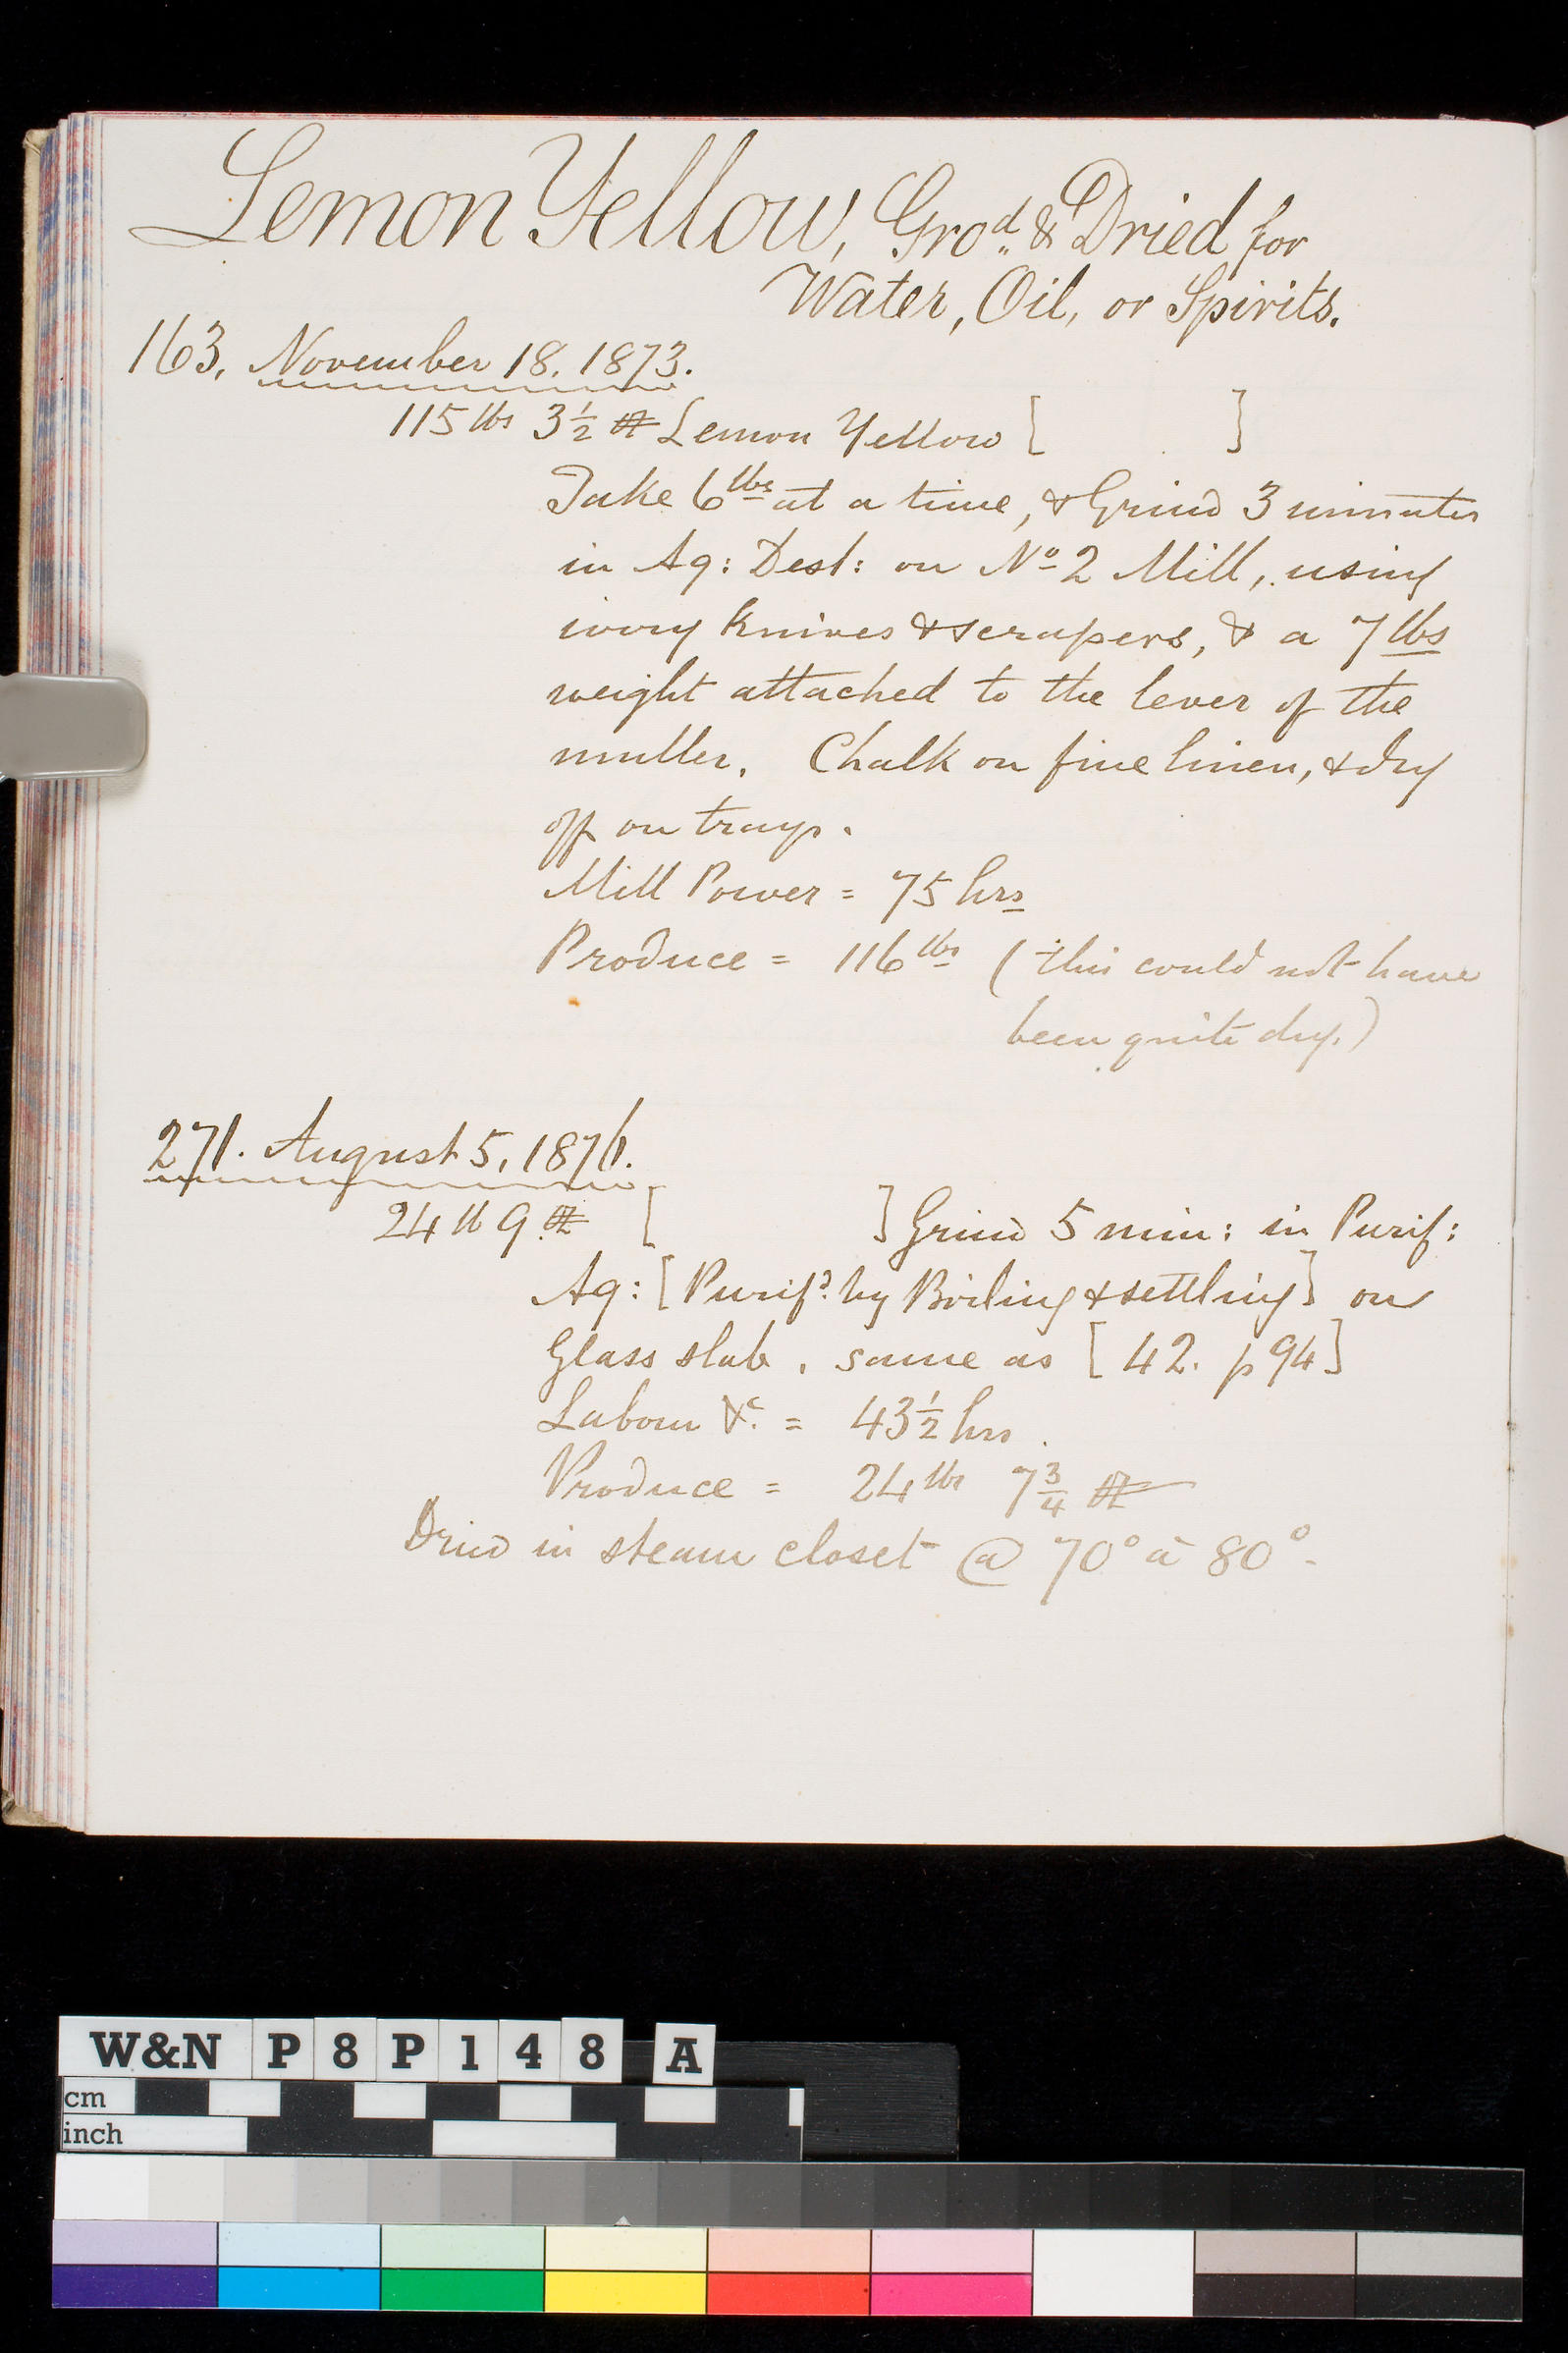 Lemon Yellow, Gro.d & Dried for
Water, Oil, or Spirits.
163, November 18. 1873.
115 lbs 3½ oz Lemon Yellow [ ]
Take 6 lbs at a time, & Grind 3 minutes
in Aq: Dest: on No 2 Mill, using
ivory knives & scrapers, & a 7 lbs
weight attached to the lever of the
muller. Chalk on fine linen, & dry
off on trays.
Mill Power = 75 hrs
Produce = 116 lbs (this could not have
been quite dry.)
271. August 5, 1876.
24 lb 9 oz [ ] Grind 5 min: in Purif:
Aq: [Purif.d by Boiling & settling] on
Glass slab. same as [42. p 94]
Labour &c. = 43½ hrs.
Produce = 24 lbs 7¾ oz
Dried in steam closet @ 70° à 80°.
W&N P8P148 A
cm
inch